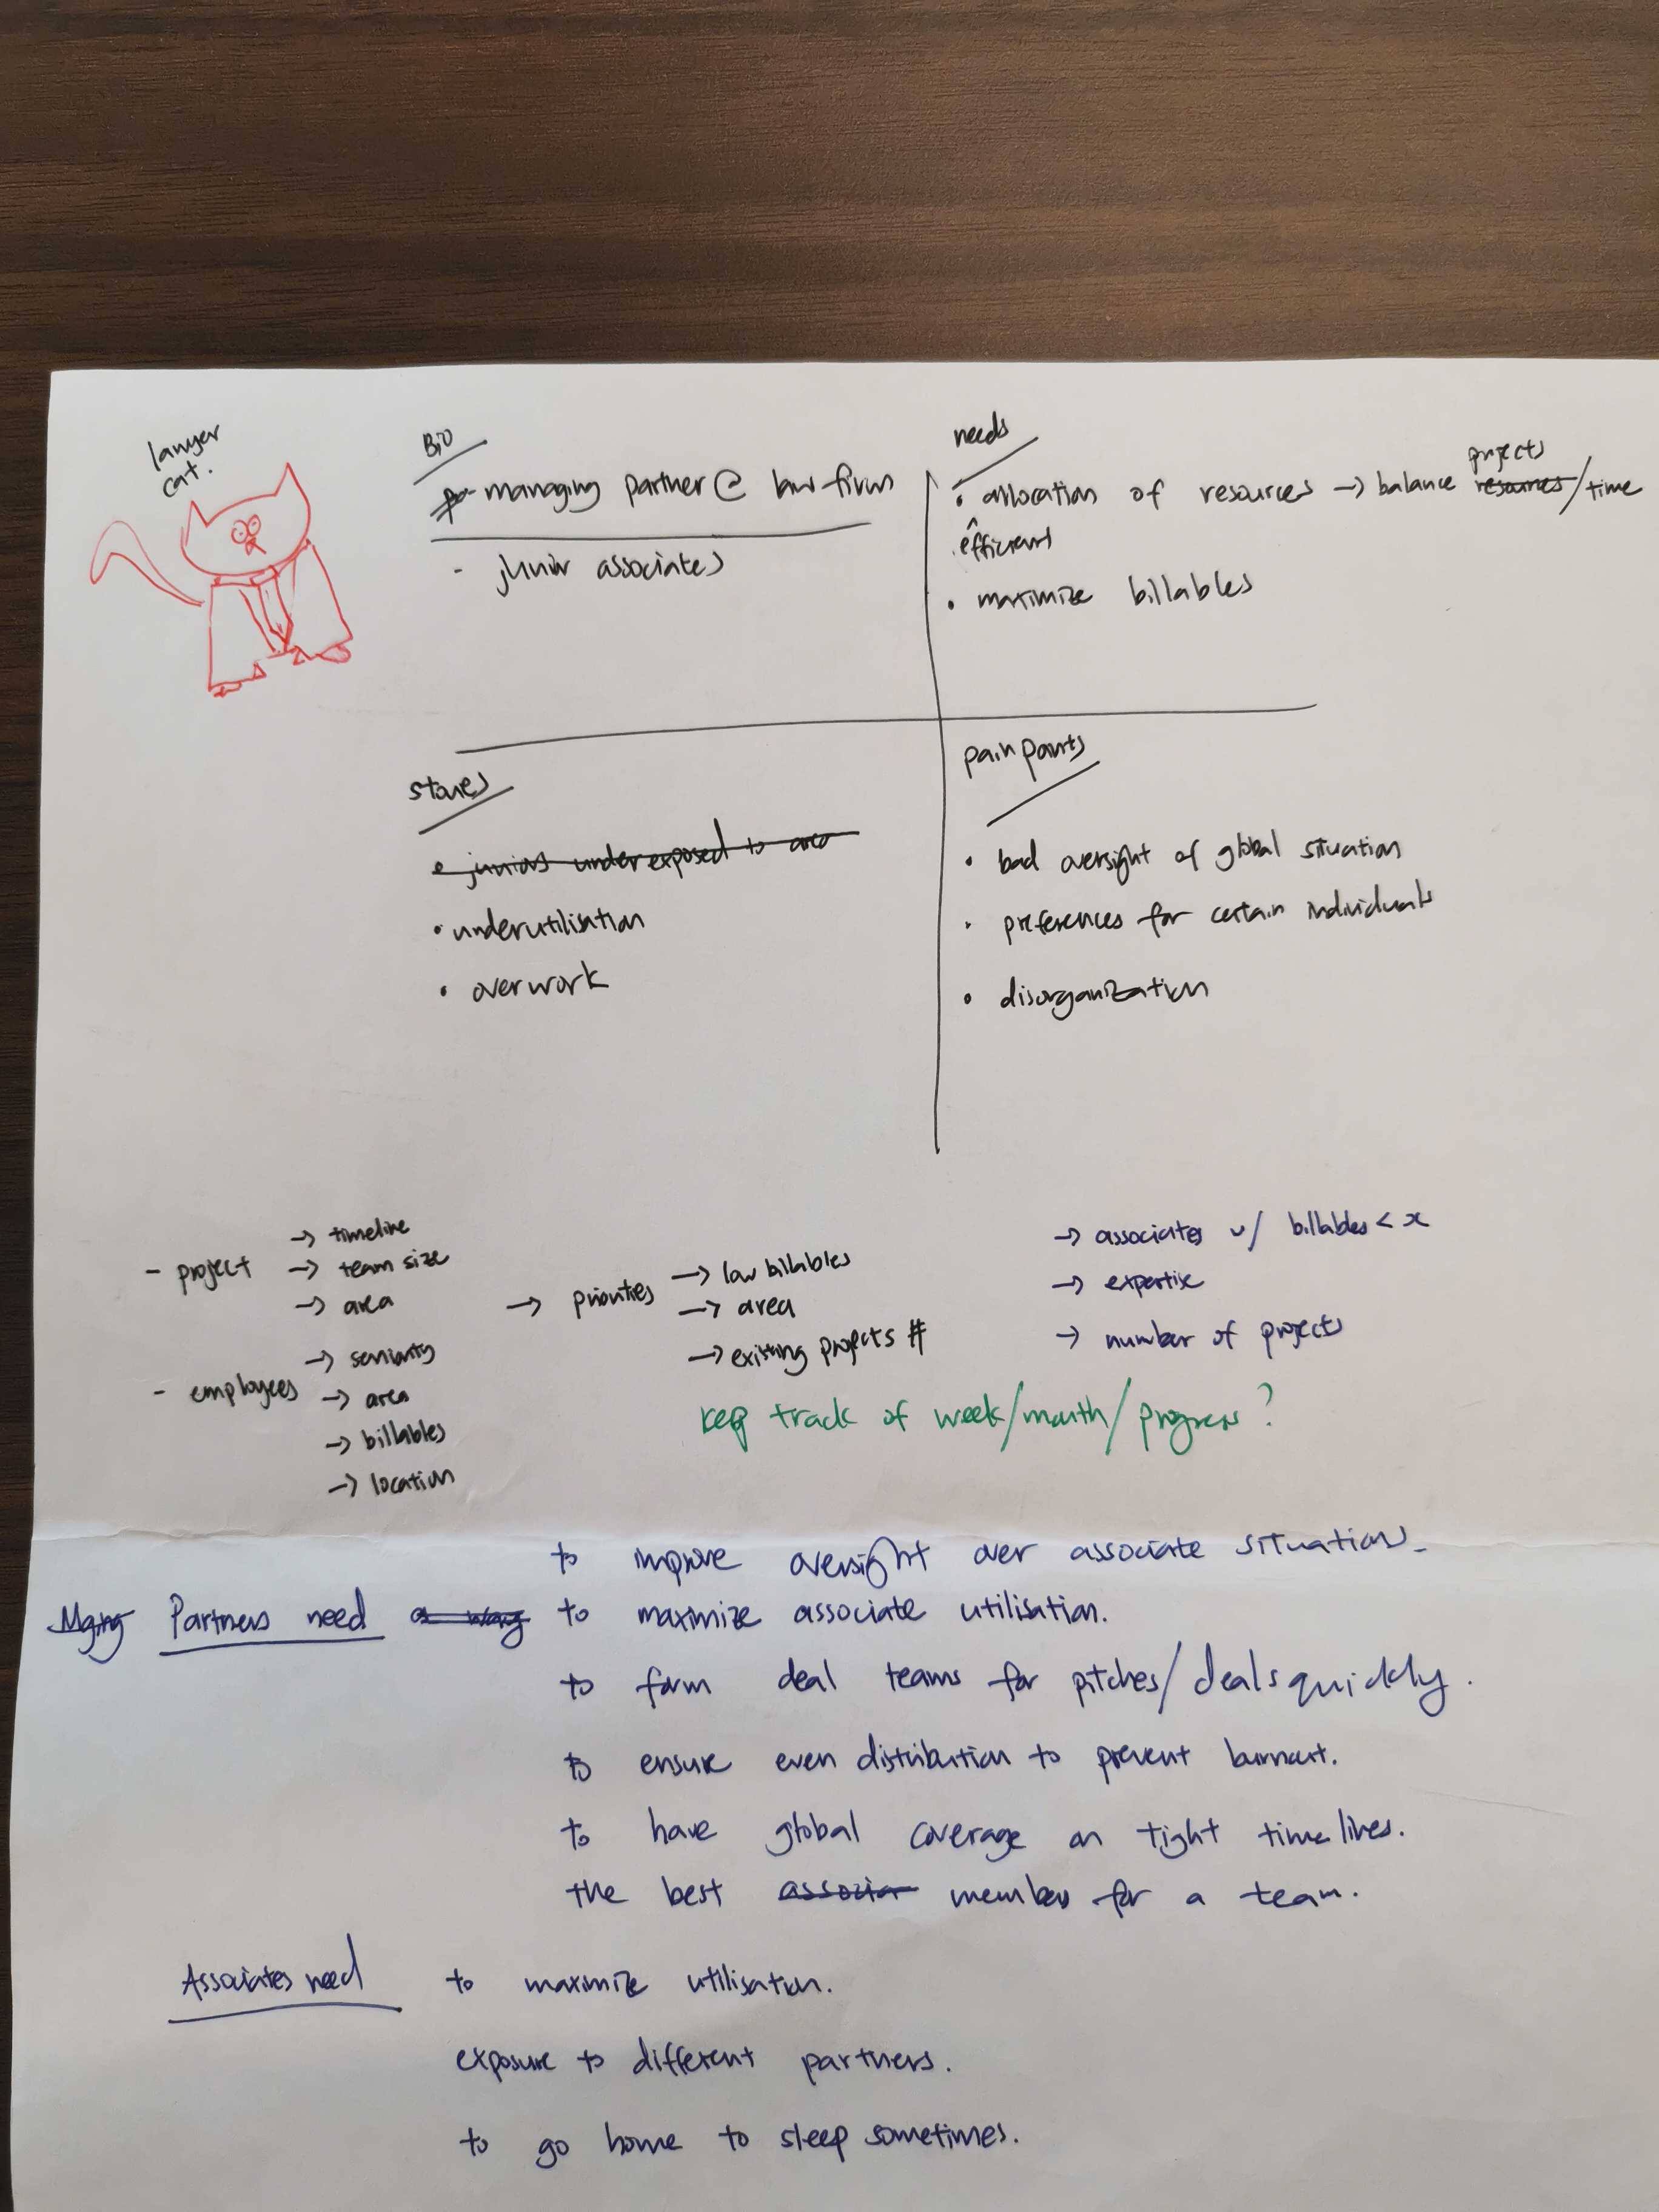 lawyer
cat.
Bio
- managing partner @ law firm
- junior associates
needs
projects
• allocation of resources → balance resources/time
^
efficient
• maximize billables
stories
• juniors under exposed to area
• underutilisation
• overwork
pain points
• bad oversight of global situation
• preferences for certain individuals
• disorganization
- project → timeline
→ team size
→ area
- employees → seniority
→ area
→ billables
→ location
→ priorities → low billables
→ area
→ existing projects #
→ associates w/ billables < x
→ expertise
→ number of projects
keep track of week/month/progress?
to improve oversight over associate situations.
Mgmg Partners need a way to maximize associate utilisation.
to form deal teams for pitches/deals quickly.
to ensure even distribution to prevent burnout.
to have global coverage on tight timelines.
the best associa member for a team.
Associates need to maximize utilisation.
exposure to different partners.
to go home to sleep sometimes.